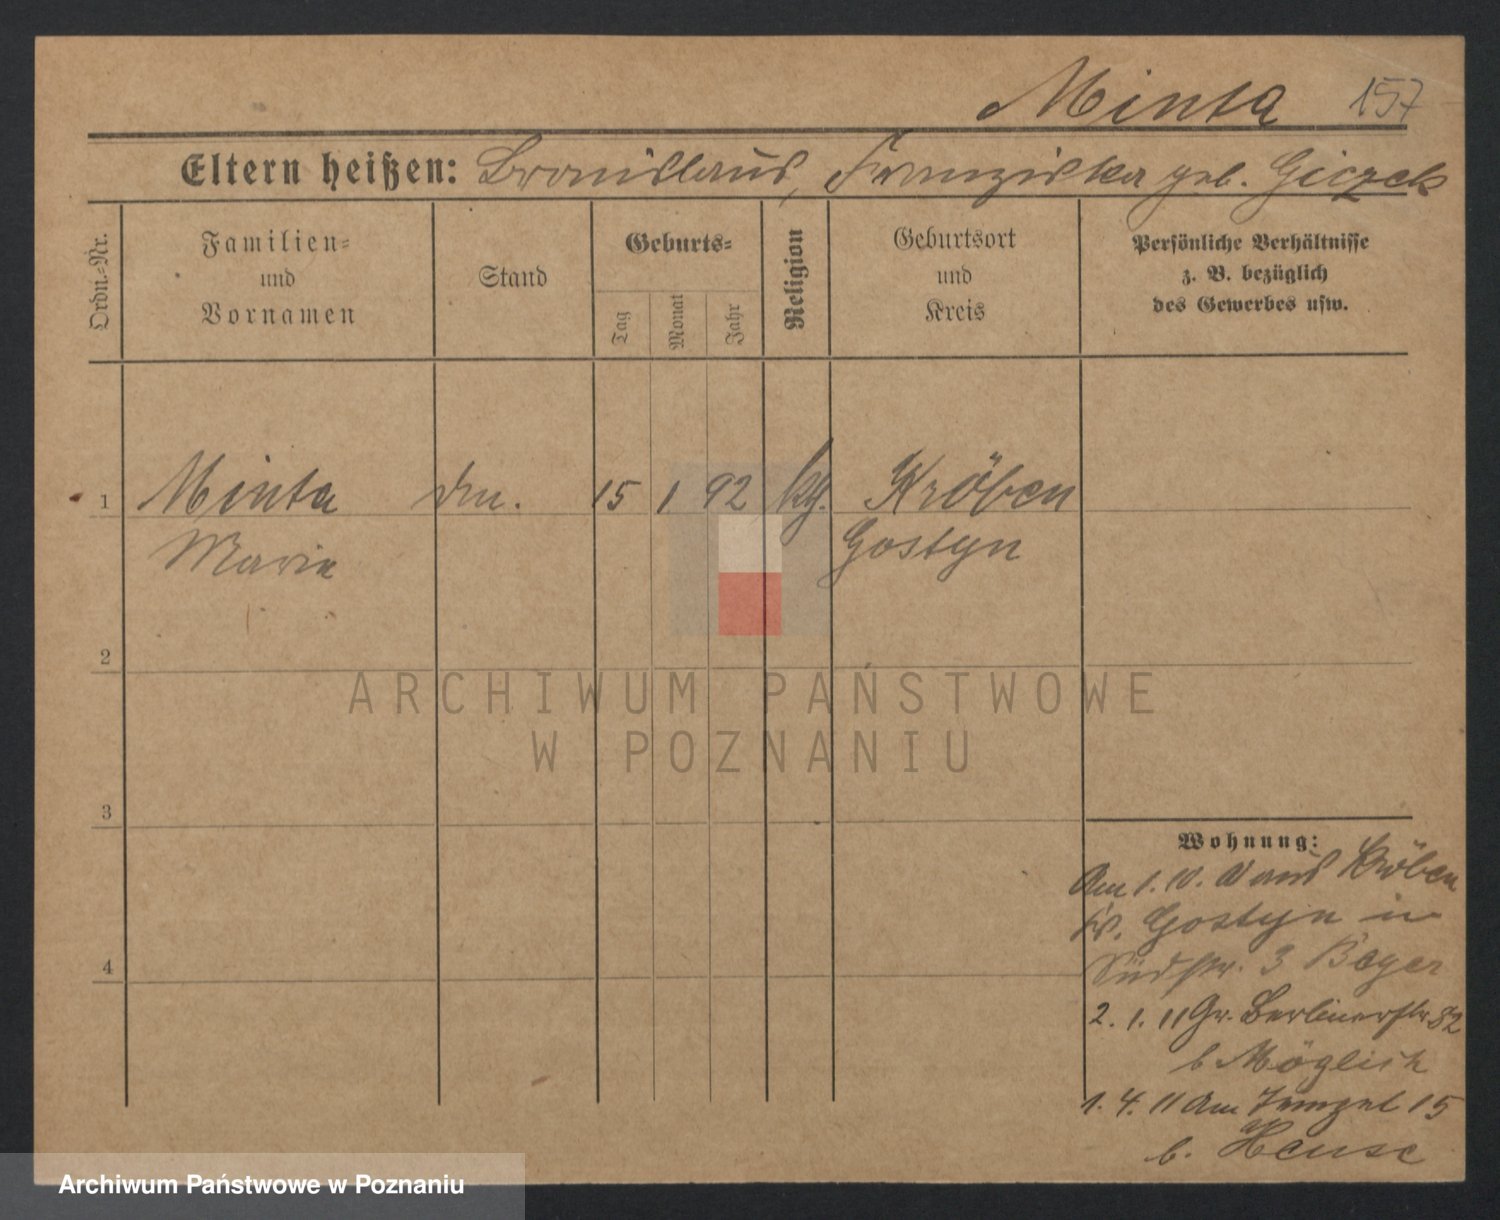 Minta 157
Eltern heißen: Bronislaus, Franziska geb. Giczek
Ordn.-Nr.
Familien-
und
Vornamen
Stand
Geburts-
Tag
Monat
Jahr
Religion
Geburtsort
und
Kreis
Persönliche Verhältnisse
z. B. bezüglich
des Gewerbes usw.
1 Minta 15 1 92 kg. Kröben
Marie Gostyn
2
3
4
Wohnung:
Am 1. 10. aus Kröben
Kr. Gostyn in
Südstr. 3 Beyer
2. 1. 11 Gr. Berlinerstr 82
b Möglich
1. 4. 11 Am 15
b. Hense
ARCHIWUM PAŃSTWOWE
W POZNANIU
Archiwum Państwowe w Poznaniu